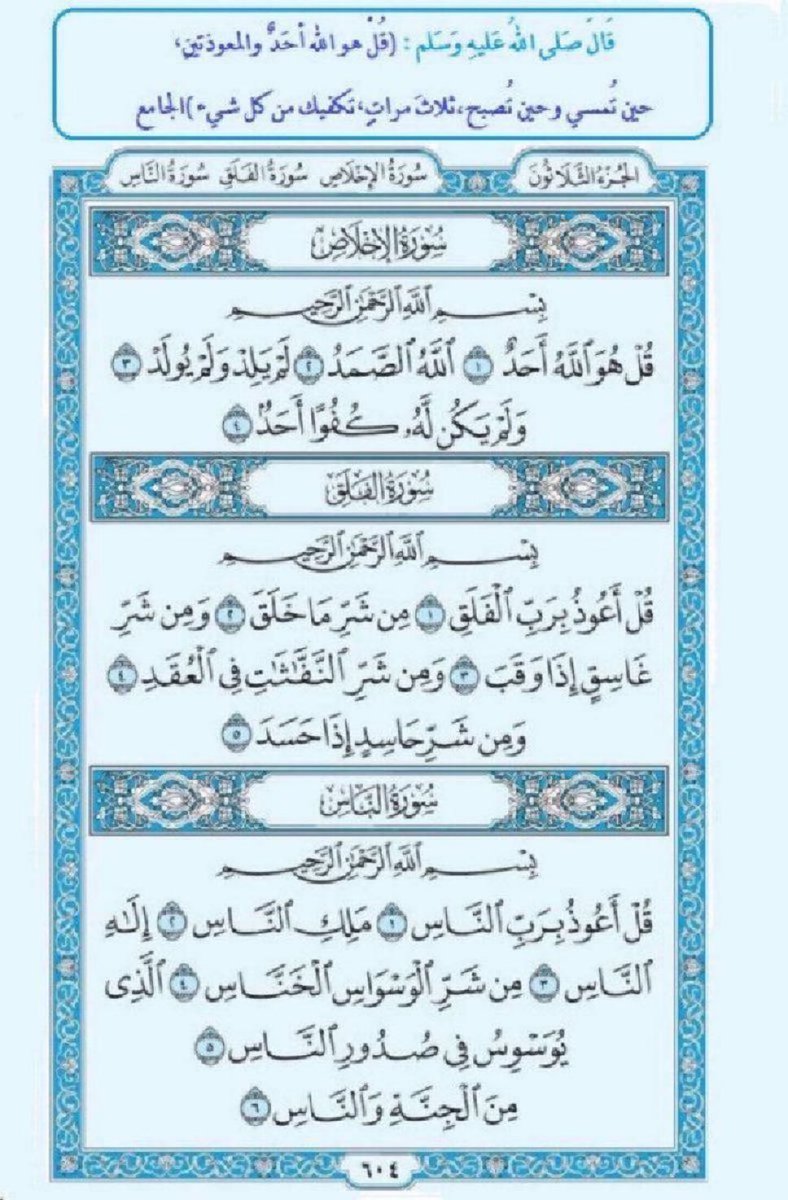 قَالَ صَلى اللهُ عَليهِ وَسَلم : (قُلْ هو الله أحَدٌ والمعوذتينِ،
حين تُمسي وحين تُصبح، ثلاثَ مراتٍ، تكفيك من كل شيء) الجامع
الجُزءُ الثَّلَاثُونَ سُورَةُ الإِخْلَاصِ سُورَةُ الفَلَقِ سُورَةُ النَّاسِ
سُورَةُ الإِخْلَاصِ
بِسْمِ ٱللَّهِ ٱلرَّحْمَٰنِ ٱلرَّحِيمِ
قُلْ هُوَ ٱللَّهُ أَحَدٌ ١ ٱللَّهُ ٱلصَّمَدُ ٢ لَمْ يَلِدْ وَلَمْ يُولَدْ ٣
وَلَمْ يَكُن لَّهُۥ كُفُوًا أَحَدٌۢ ٤
سُورَةُ الفَلَقِ
بِسْمِ ٱللَّهِ ٱلرَّحْمَٰنِ ٱلرَّحِيمِ
قُلْ أَعُوذُ بِرَبِّ ٱلْفَلَقِ ١ مِن شَرِّ مَا خَلَقَ ٢ وَمِن شَرِّ
غَاسِقٍ إِذَا وَقَبَ ٣ وَمِن شَرِّ ٱلنَّفَّٰثَٰتِ فِى ٱلْعُقَدِ ٤
وَمِن شَرِّ حَاسِدٍ إِذَا حَسَدَ ٥
سُورَةُ النَّاسِ
بِسْمِ ٱللَّهِ ٱلرَّحْمَٰنِ ٱلرَّحِيمِ
قُلْ أَعُوذُ بِرَبِّ ٱلنَّاسِ ١ مَلِكِ ٱلنَّاسِ ٢ إِلَٰهِ
ٱلنَّاسِ ٣ مِن شَرِّ ٱلْوَسْوَاسِ ٱلْخَنَّاسِ ٤ ٱلَّذِى
يُوَسْوِسُ فِى صُدُورِ ٱلنَّاسِ ٥
مِنَ ٱلْجِنَّةِ وَٱلنَّاسِ ٦
٦٠٤